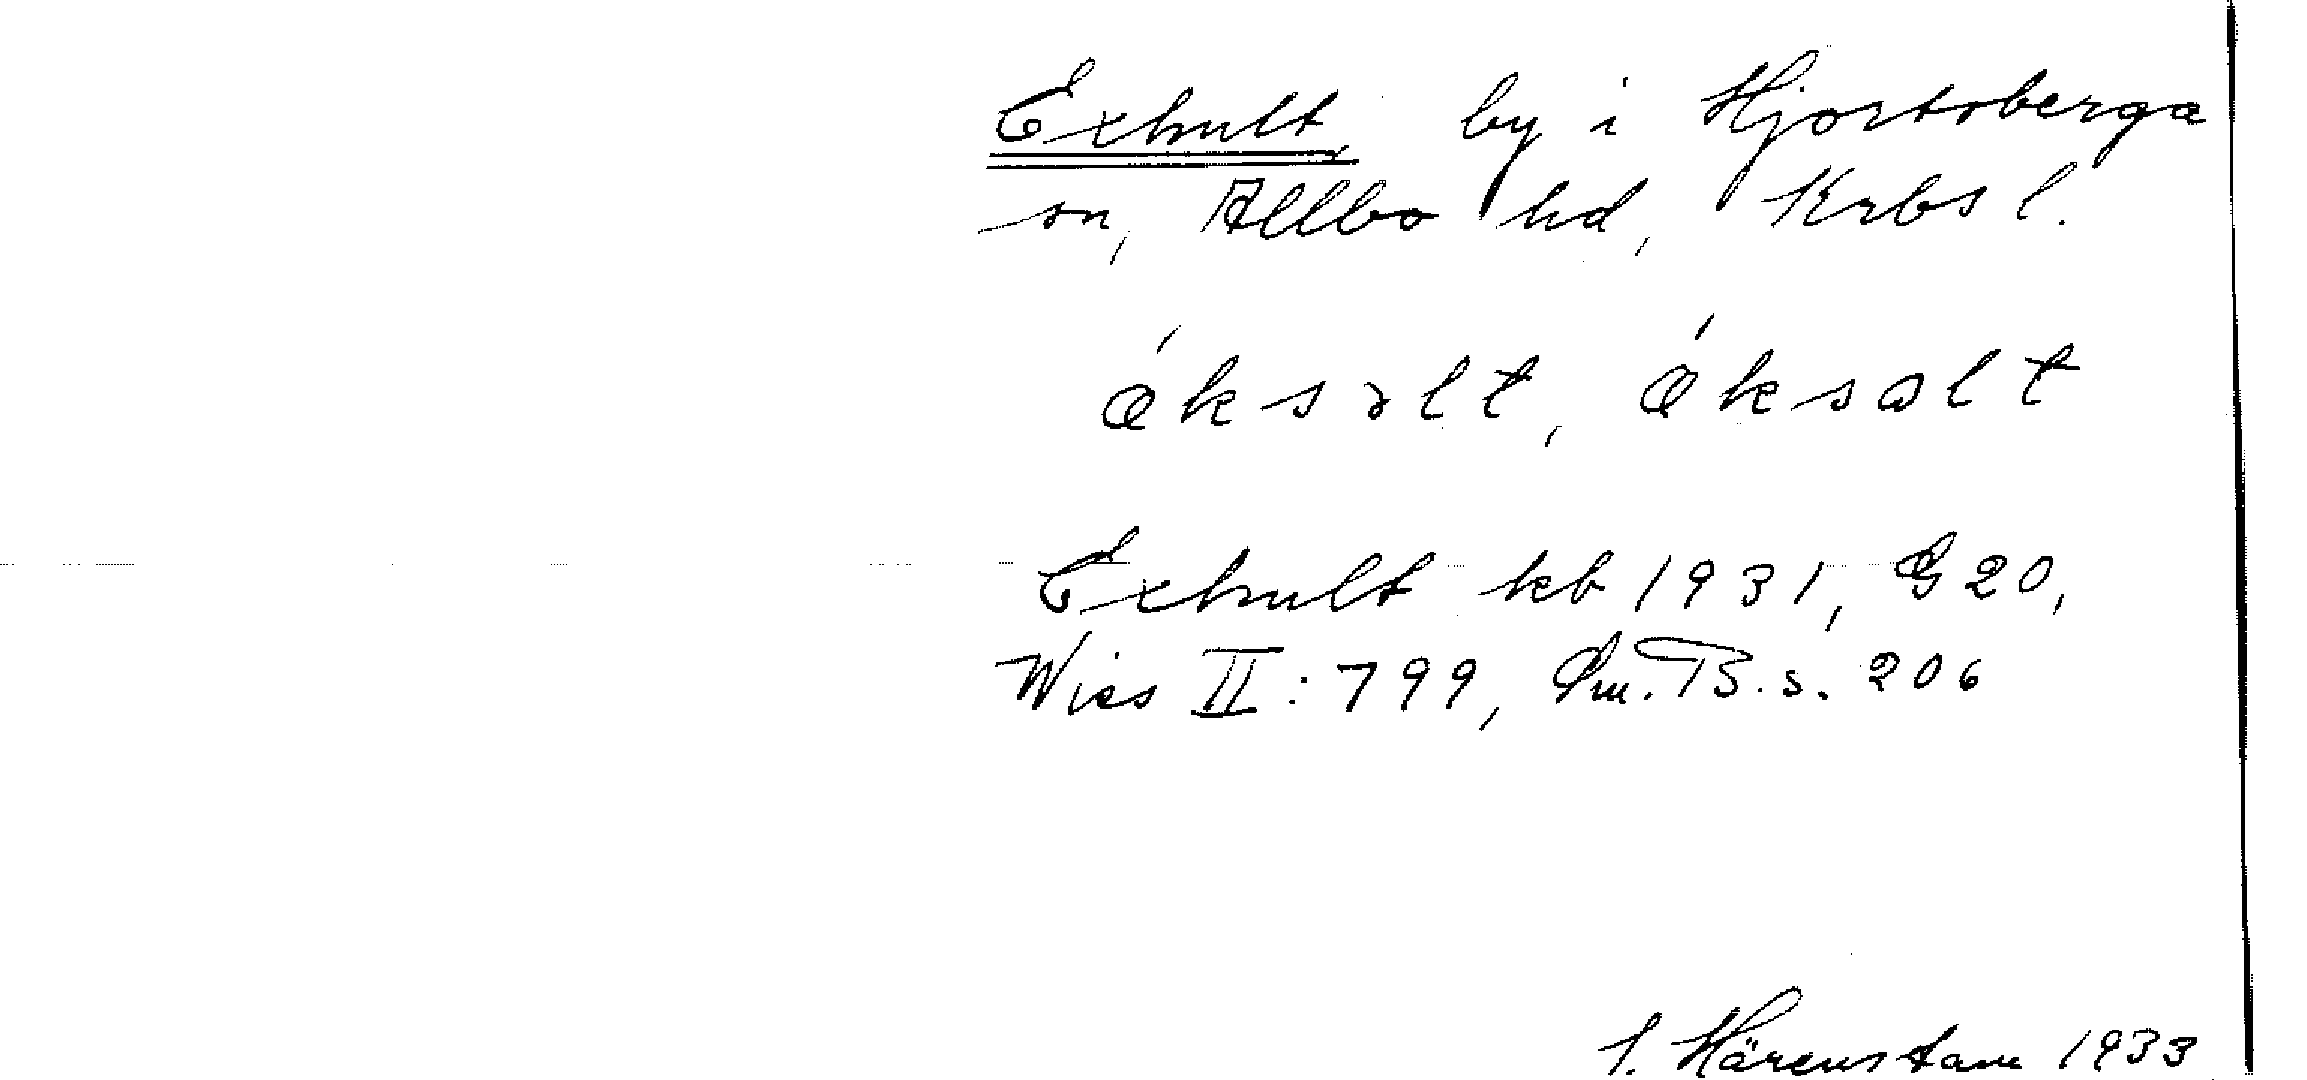 Exhult, by i Hjortsberga
sn, Allbo hd, Krbs l.
ǽksɔlt, ǽksɑlt
Exhult kb 1931, G 20,
Wies II: 799, Sm. B. s. 206
J. Härenstam 1933